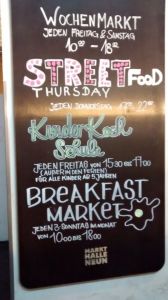 WOCHENMARKT
JEDEN FREITAG & SAMSTAG
10⁰⁰ - 18⁰⁰
STREET FOOD
THURSDAY
JEDEN DONNERSTAG 17⁰⁰ - 22⁰⁰
Kinder Koch
Schule
JEDEN FREITAG VON 15³⁰ BIS 17⁰⁰
(AUßER IN DEN FERIEN)
FÜR ALLE KINDER AB 5 JAHREN
BREAKFAST
MARKET
JEDEN 3. SONNTAG IM MONAT
VON 10⁰⁰ BIS 18⁰⁰
MARKT
HALLE
NEUN